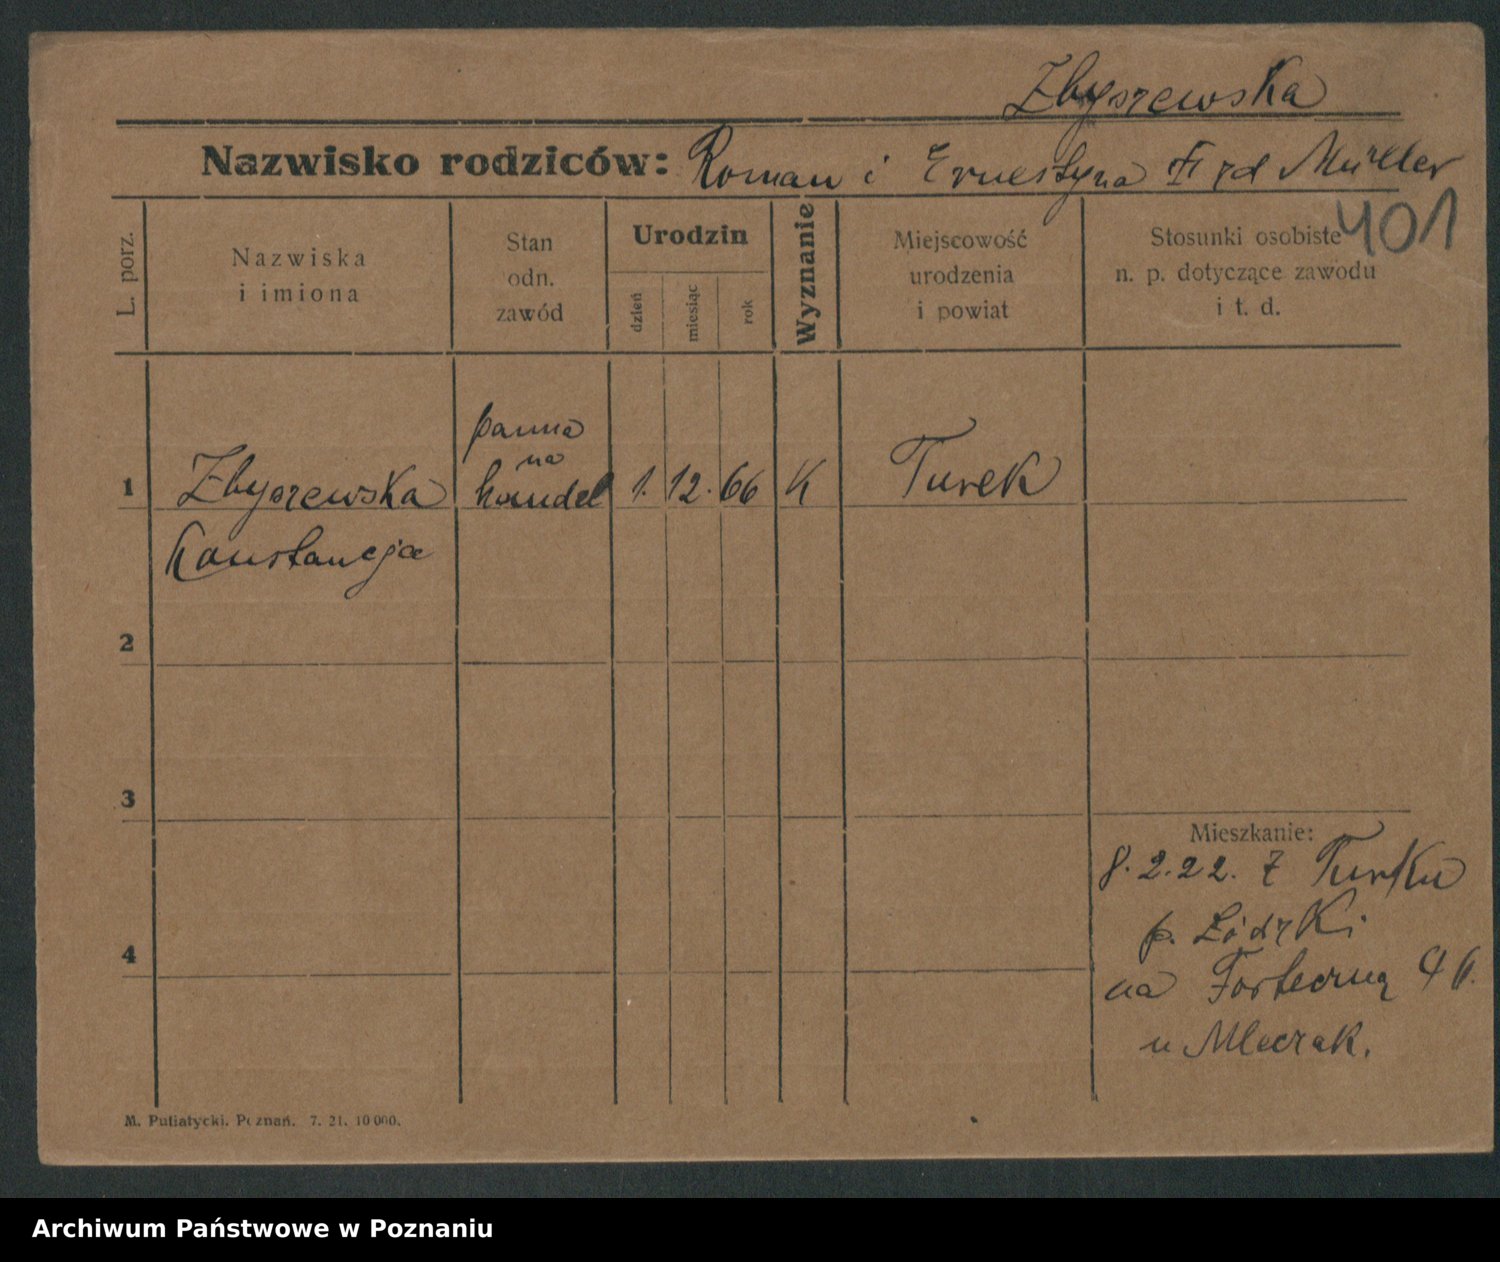 Zbyszewska
Nazwisko rodziców: Roman i Ernestyna Müller
401
L. porz.
Nazwiska
i imiona
Stan
odn.
zawód
Urodzin
dzień
miesiąc
rok
Wyznanie
Miejscowość
urodzenia
i powiat
Stosunki osobiste
n. p. dotyczące zawodu
i t. d.
panna
na
1 Zbyszewska handel 1. 12. 66 K Turek
Konstancja
2
3
Mieszkanie:
8.2.22. z Turku
p. Łódzki
4
na Forteczną
u Mleczak.
M. Putiatycki. Poznań. 7. 21. 10 000.
Archiwum Państwowe w Poznaniu